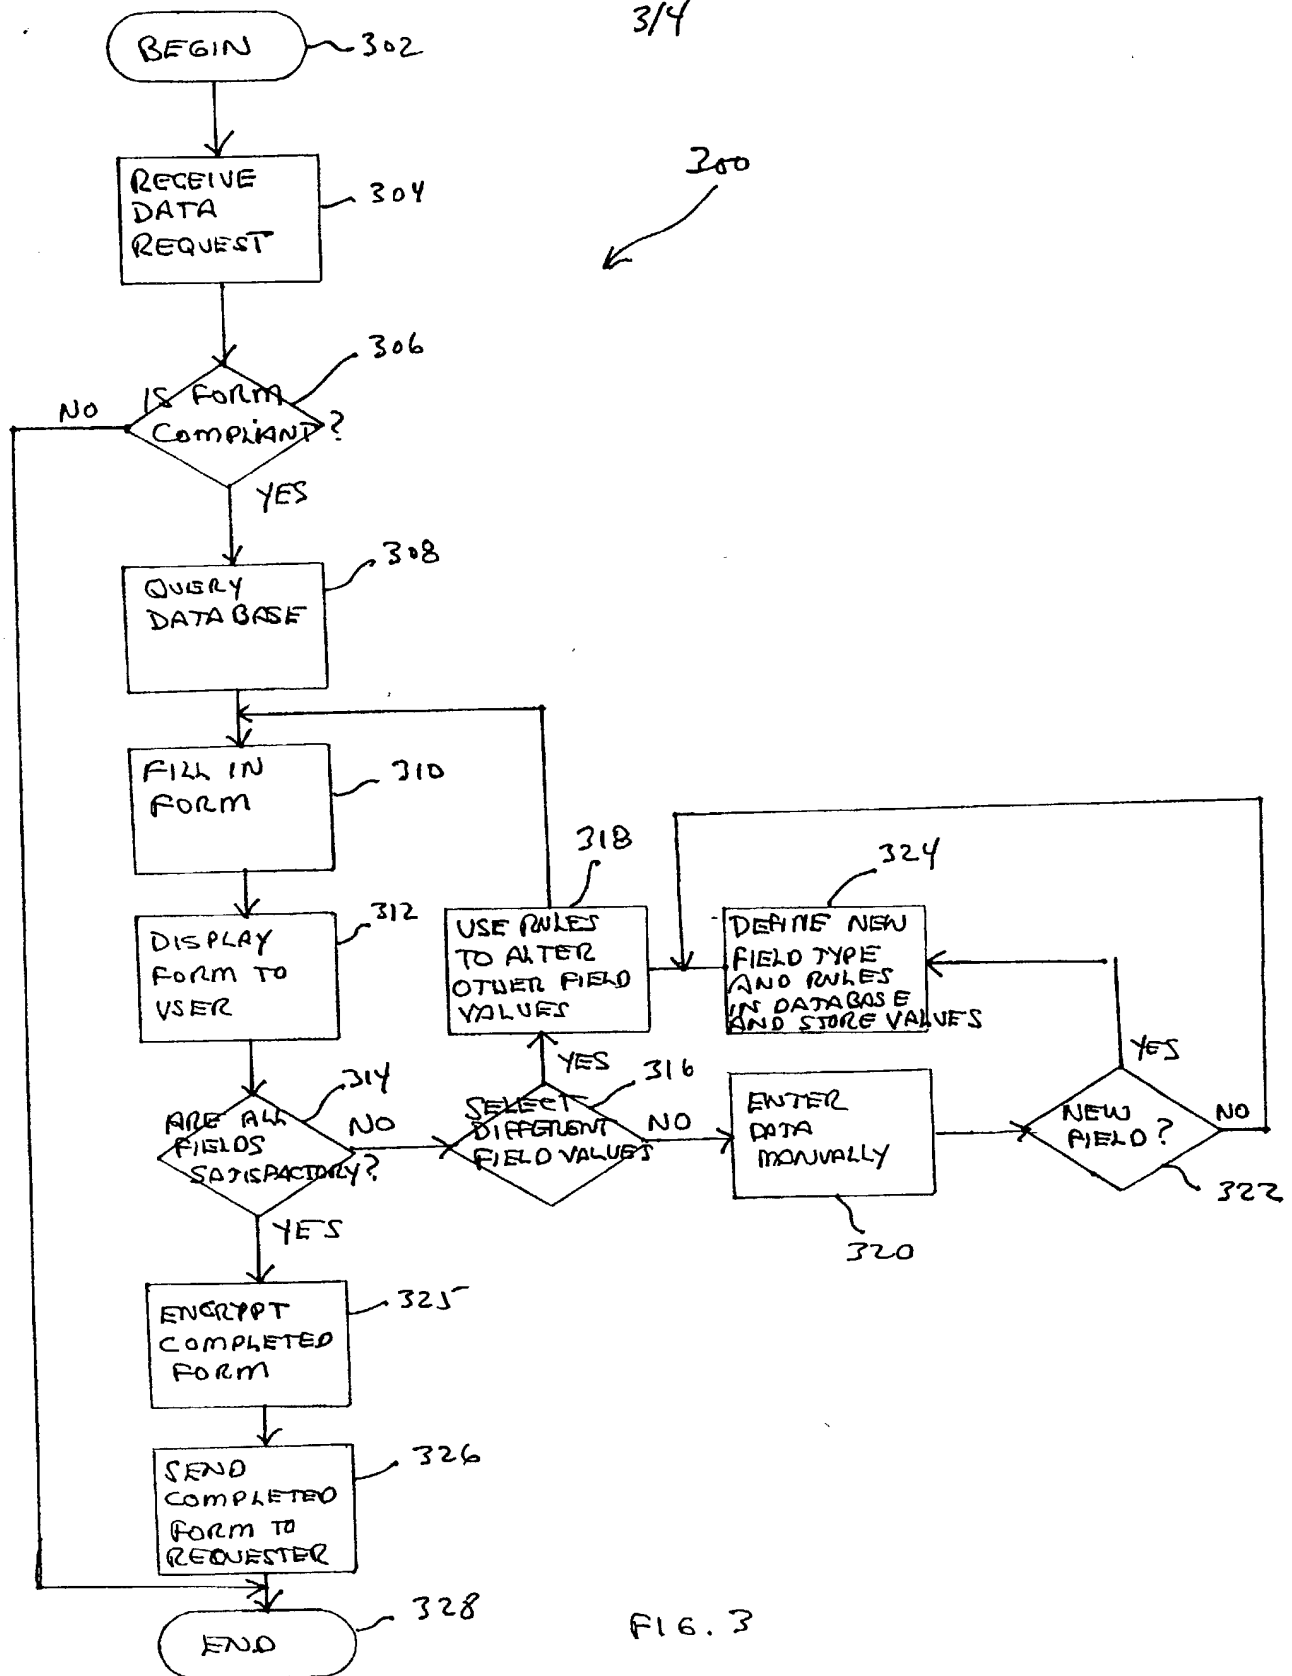 3/4
BEGIN
302
300
RECEIVE
DATA
REQUEST
304
306
IS FORM
COMPLIANT?
NO
YES
308
QUERY
DATABASE
FILL IN
FORM
310
318
324
312
DISPLAY
FORM TO
USER
USE RULES
TO ALTER
OTHER FIELD
VALUES
DEFINE NEW
FIELD TYPE
AND RULES
IN DATABASE
AND STORE VALUES
314
YES
316
YES
ARE ALL
FIELDS
SATISFACTORY?
NO
SELECT
DIFFERENT
FIELD VALUES
NO
ENTER
DATA
MANUALLY
NEW
FIELD?
NO
322
320
YES
ENCRYPT
COMPLETED
FORM
325
SEND
COMPLETED
FORM TO
REQUESTER
326
328
END
FIG. 3